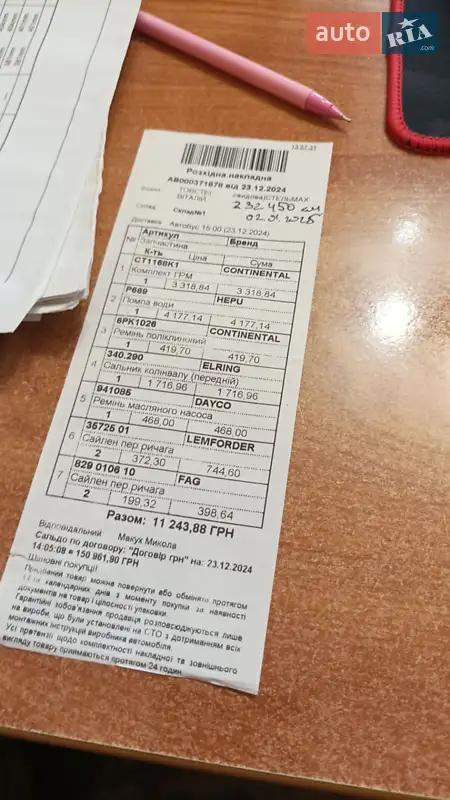 auto RIA .com
13.32.31
Розхідна накладна
AB000371878 від 23.12.2024
ТОВСТЕЙ ВІТАЛІЙ
СТЕЛЬМАХ
232 450 км
Склад Склад№1
02.01.2025
Доставка Автобус 15:00 (23.12.2024)
№ Артикул Бренд
Запчастина
К-ть Ціна Сума
1 CT1168K1 CONTINENTAL
Комплект ГРМ
1 3 318,84 3 318,84
2 P669 HEPU
Помпа води
1 4 177,14 4 177,14
3 6PK1026 CONTINENTAL
Ремінь поліклиновий
1 419,70 419,70
4 340.290 ELRING
Сальник колінвалу (передній)
1 1 716,96 1 716,96
5 941085 DAYCO
Ремінь масляного насоса
1 468,00 468,00
6 35725 01 LEMFORDER
Сайлен пер ричага
2 372,30 744,60
7 829 0106 10 FAG
Сайлен пер.ричага
2 199,32 398,64
Разом: 11 243,88 ГРН
Відповідальний Макух Микола
Сальдо по договору: "Договір грн" на: 23.12.2024
14:05:08 = 150 961,80 ГРН
Шановні покупці!
Придбаний товар можна повернути або обміняти протягом
14-ти календарних днів з моменту покупки за наявності
документів на товар і цілосності упаковки.
Гарантійні зобов'язання продавця розповсюджуються лише
на вироби, що були установлені на СТО з дотриманням всіх
монтажних інструкцій виробника автомобіля.
Усі претензії щодо комплектності накладної та зовнішнього
вигляду товару приймаються протягом 24 годин.